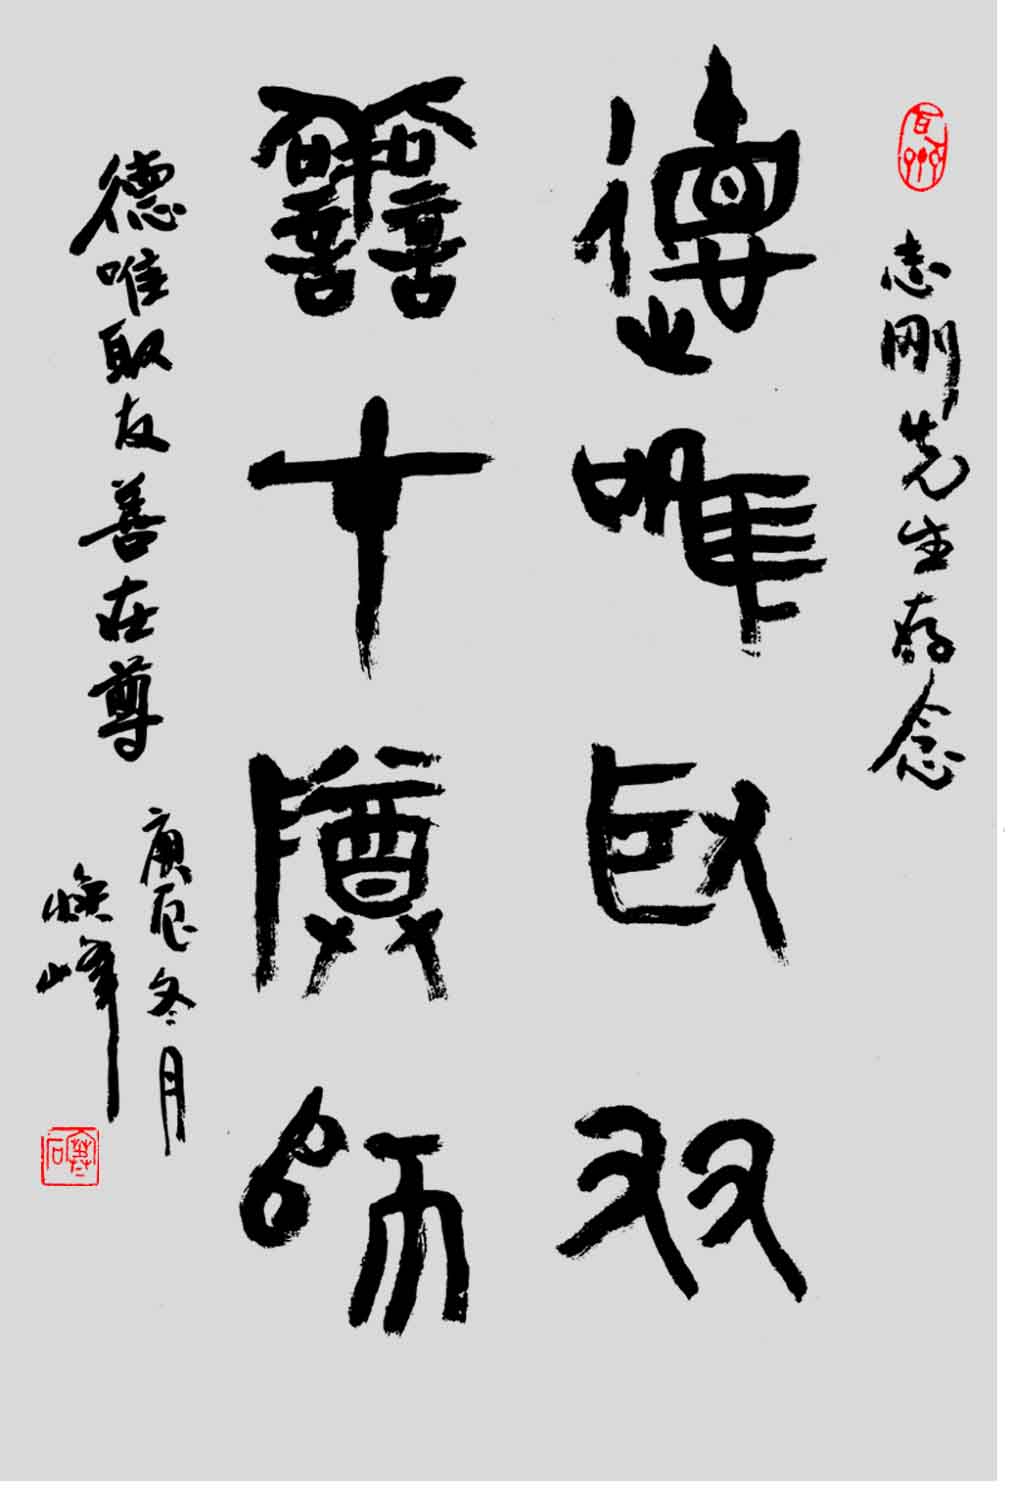 志刚先生存念
德唯取友
善在尊師
德唯取友善在尊
庚辰冬月
焕峰